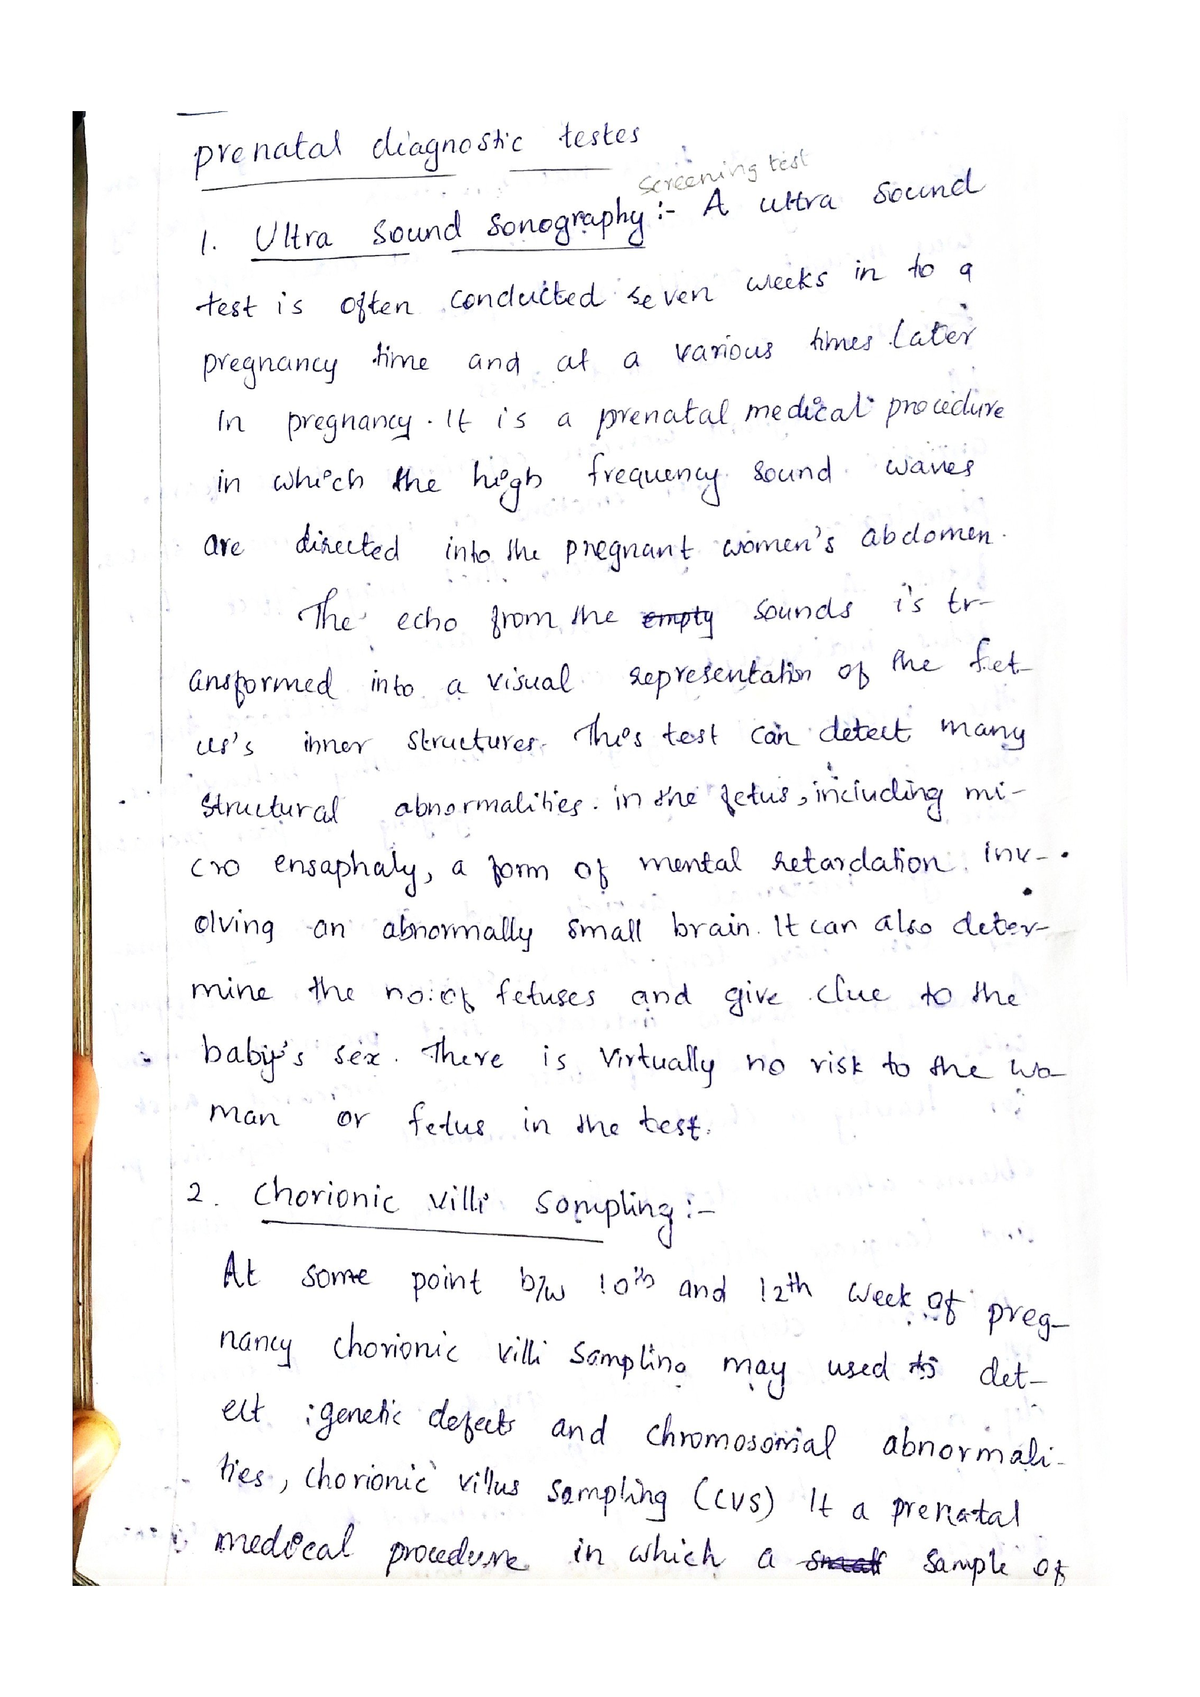 prenatal diagnostic testes
Screening test
1. Ultra Sound Sonography :- A ultra sound
test is often conducted seven weeks in to a
pregnancy time and at a various times later
in pregnancy. It is a prenatal medical procedure
in which the high frequency sound waves
are directed into the pregnant women's abdomen.
The echo from the empty sounds is tr-
ansformed into a visual representation of the fet-
us's inner structures. This test can detect many
structural abnormalities in the fetus, including mi-
cro ensaphaly, a form of mental retardation inv-
olving an abnormally small brain. It can also deter-
mine the no: of fetuses and give clue to the
baby's sex. There is virtually no risk to the wo-
man or fetus in the test.
2. Chorionic villi sampling :-
At some point b/w 10th and 12th week of preg-
nancy chorionic villi sampling may used to det-
ect genetic defects and chromosomial abnormali-
ties, chorionic villus sampling (CVS) It a prenatal
medical procedure in which a small sample of